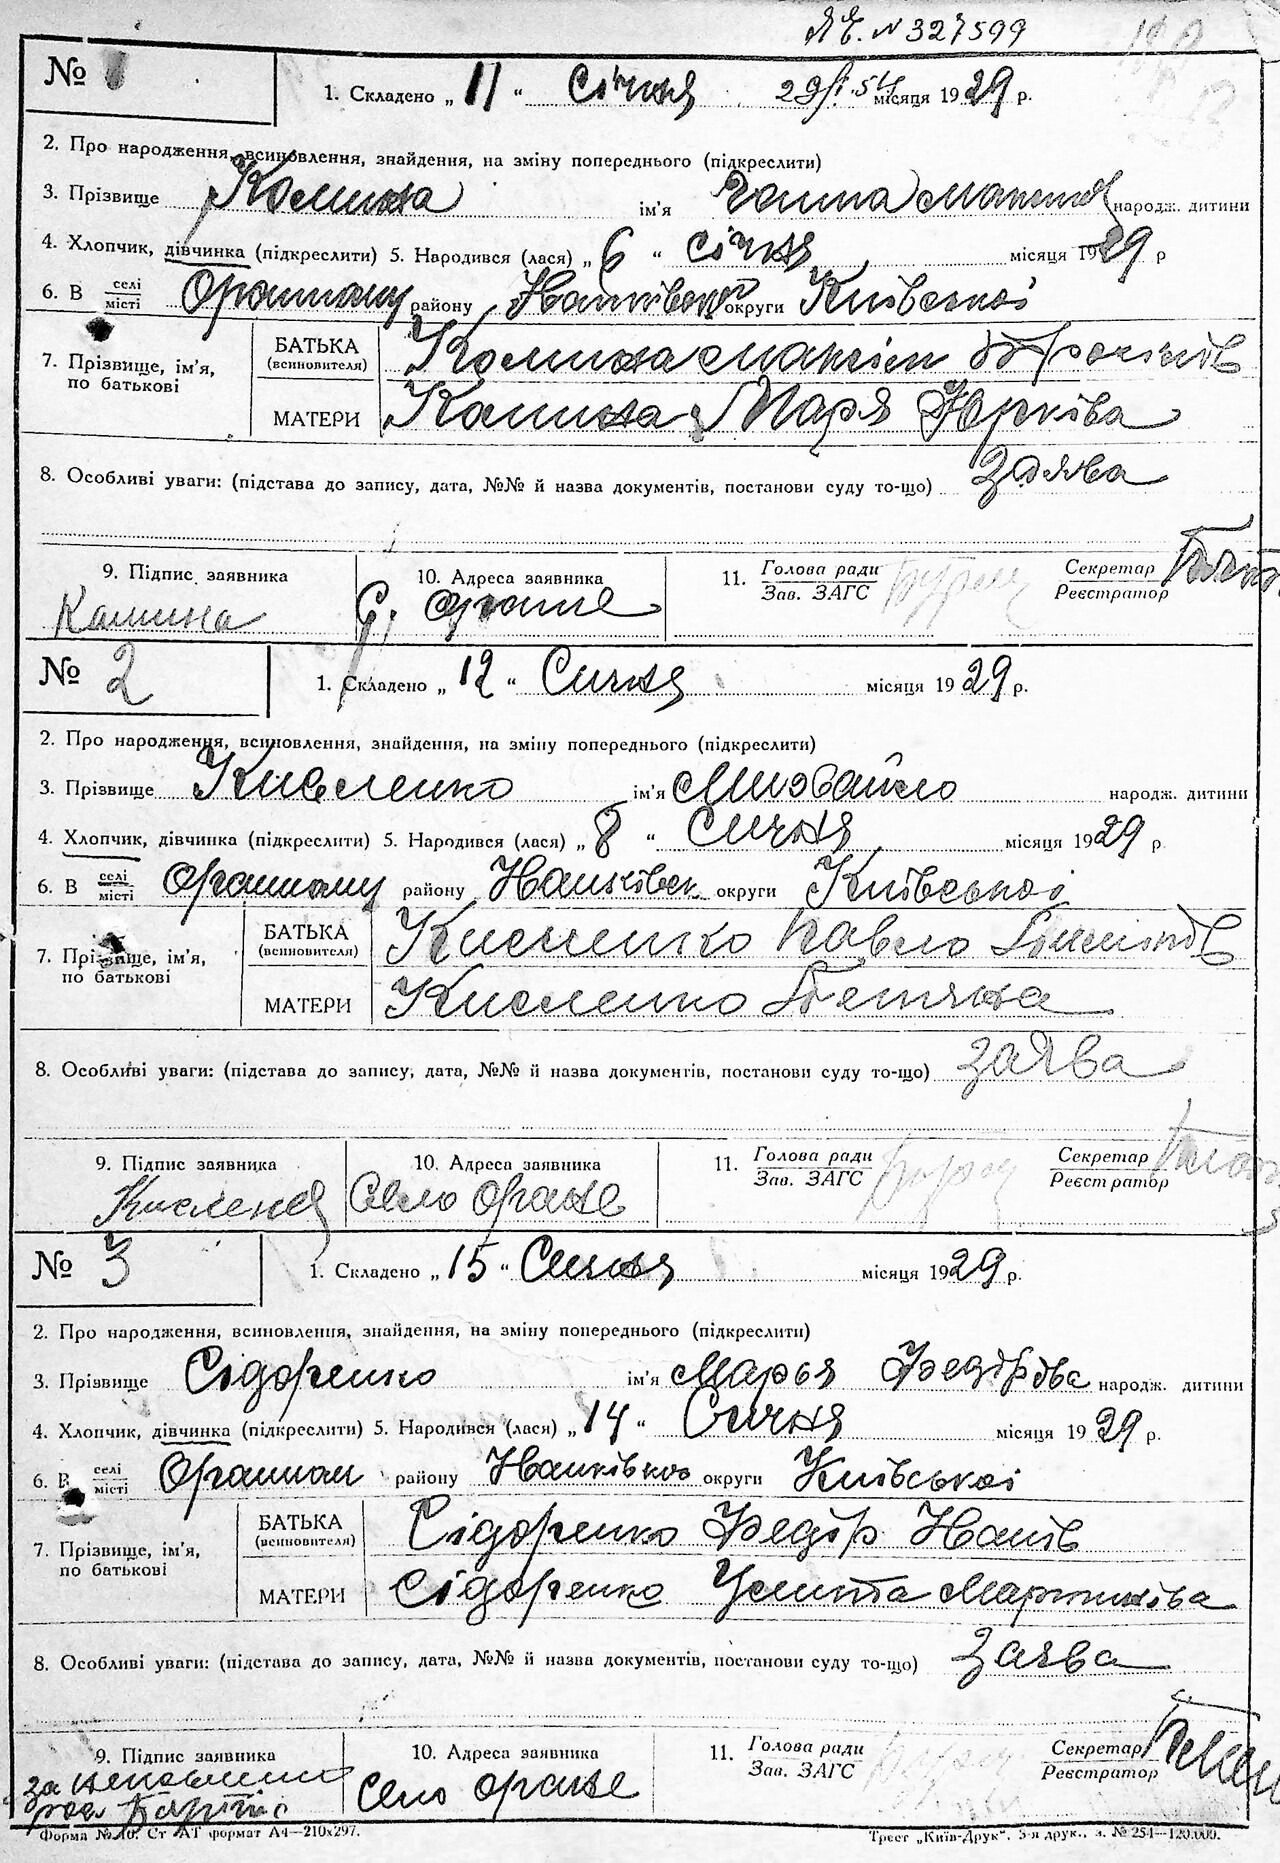 ЯЄ. N 327599
№ 1
1. Складено „ 11 “ Січня 29/I.54 місяця 1929 р.
2. Про народження, всиновлення, знайдення, на зміну попереднього (підкреслити)
3. Прізвище Калина ім'я Ганна народж. дитини
4. Хлопчик, дівчинка (підкреслити) 5. Народився (лася) „ 6 “ січня місяця 1929 р
6. В селі/місті Ораному району округи Київської
7. Прізвище, ім'я, по батькові
БАТЬКА (всиновителя) Калина Максім
МАТЕРИ Калина Маря Юркова
8. Особливі уваги: (підстава до запису, дата, №№ й назва документів, постанови суду то-що) Заява
9. Підпис заявника 10. Адреса заявника 11. Голова ради/Зав. ЗАГС Секретар/Реєстратор
Калина С. Оране
№ 2
1. Складено „ 12 “ Сичня місяця 1929 р.
2. Про народження, всиновлення, знайдення, на зміну попереднього (підкреслити)
3. Прізвище Кисленко ім'я Михайло народж. дитини
4. Хлопчик, дівчинка (підкреслити) 5. Народився (лася) „ 8 “ Сичня місяця 1929 р
6. В селі/місті Ораному району округи Київської
7. Прізвище, ім'я, по батькові
БАТЬКА (всиновителя) Кисленко Павло
МАТЕРИ Кисленко Тетяна
8. Особливі уваги: (підстава до запису, дата, №№ й назва документів, постанови суду то-що) заява
9. Підпис заявника 10. Адреса заявника 11. Голова ради/Зав. ЗАГС Секретар/Реєстратор
Село Оране
№ 3
1. Складено „ 15 “ Сичня місяця 1929 р.
2. Про народження, всиновлення, знайдення, на зміну попереднього (підкреслити)
3. Прізвище Сідоренко ім'я Марья Федірова народж. дитини
4. Хлопчик, дівчинка (підкреслити) 5. Народився (лася) „ 14 “ Сичня місяця 1929 р.
6. В селі/місті району округи Київської
7. Прізвище, ім'я, по батькові
БАТЬКА (всиновителя) Сідоренко Федір
МАТЕРИ Сідоренко Улита
8. Особливі уваги: (підстава до запису, дата, №№ й назва документів, постанови суду то-що) Заява
9. Підпис заявника 10. Адреса заявника 11. Голова ради/Зав. ЗАГС Секретар/Реєстратор
за Село Оране
Форма № 10. Ст АТ формат А4—210х297.
Трест „Київ-Друк“, 5-я друк., з. № 254—120.000.